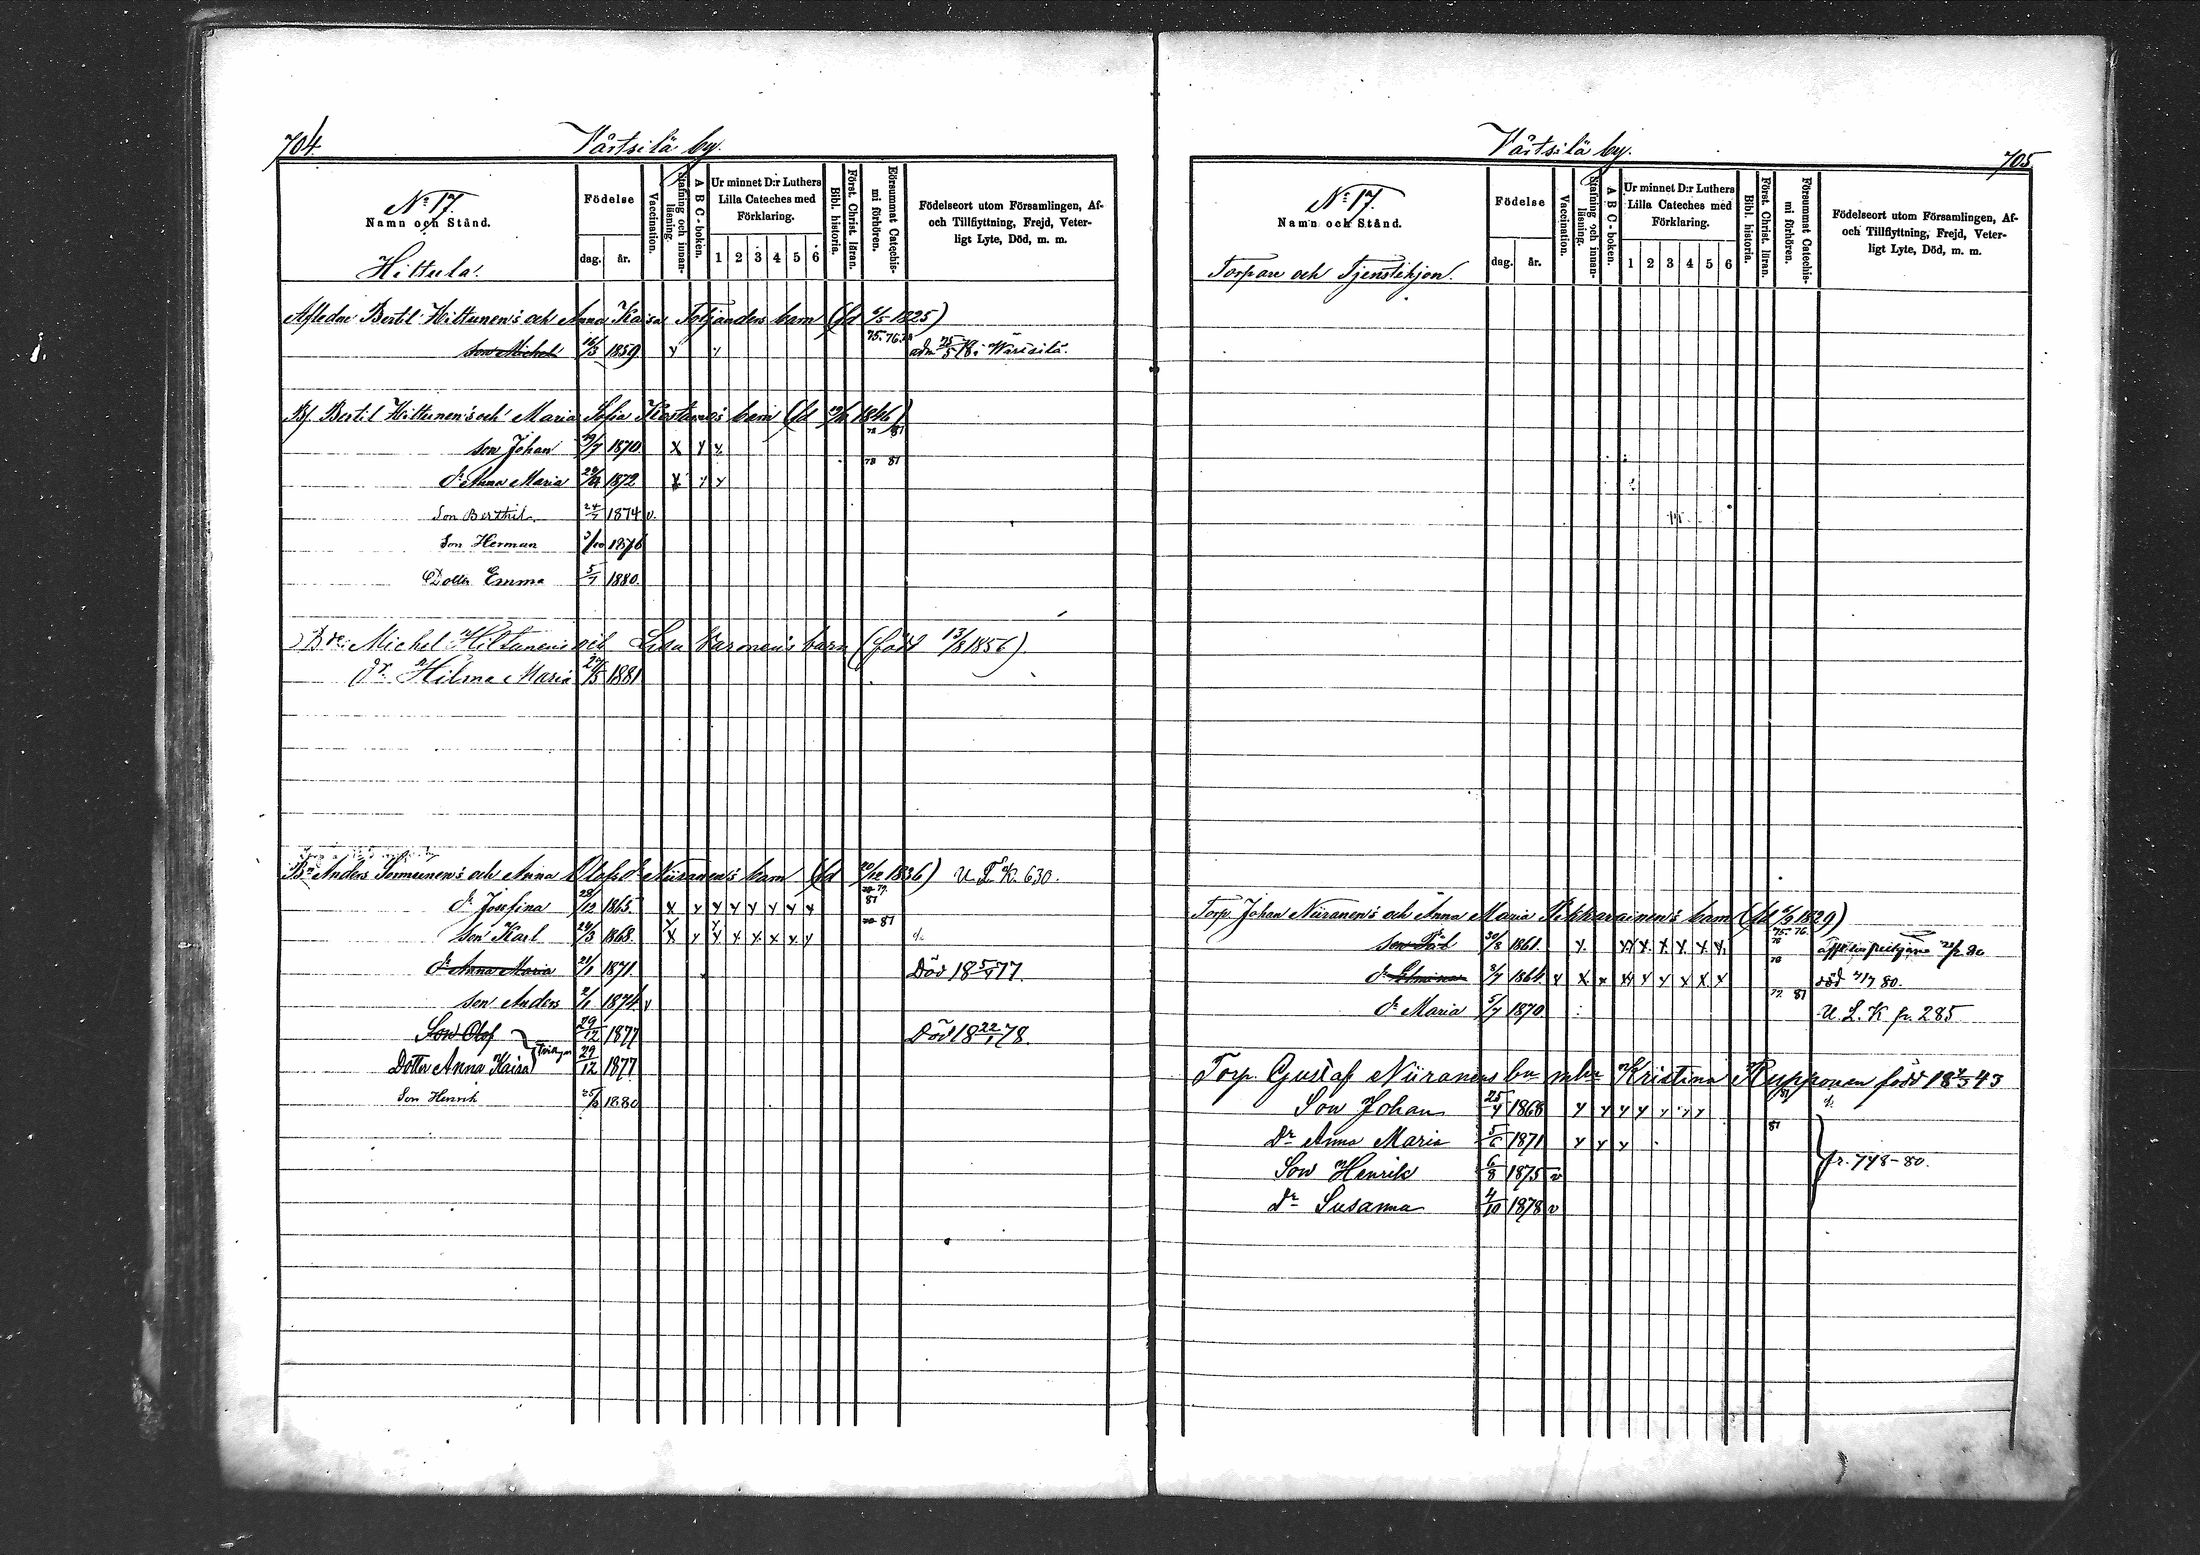 704.
Värtsilä by.
N:o 17.
Namn och Stånd.
Hittula.
Födelse
dag. år.
Vaccination.
Stafning och innanläsning.
A B C-boken.
Ur minnet D:r Luthers Lilla Cateches med Förklaring.
1 2 3 4 5 6
Bibl. historia.
Först. Christ. läran.
Försummat Catechismi förhören.
Födelseort utom Församlingen, Af- och Tillflyttning, Frejd, Veterligt Lyte, Död, m. m.
Afledne Bertil Hiltunen's och Anna Kaisa barn (fd 1825)
Son Michel 16/3 1859 75. 76. adm 25/5 78 i Wärtsilä.
Bf. Bertil Hiltunen's och Maria Sofia barn (fd 1846)
son Johan 1870 78 81
dr Anna Maria 1872 78 81
Son Berthil 24/7 1874 v.
Son Herman 1876
Dotter Emma 5/7 1880.
Michel Hiltunens och Lisa Karonen's barn (född 13/8 1856).
dr. Hilma Maria 27/5 1881
Anders och Anna Olofsdr Niiranen's barn (fd 20/12 1836) U. L. K. 630.
dr Josefina 28/12 1865. 79. 81
son Karl 24/3 1868. 81
dr Anna Maria 21/1 1871. Död 18 5/1 77.
son Anders 2/1 1874 v
Son Olof 29/12 1877 Död 18 22/1 78.
Dotter Anna Kaisa 29/12 1877
Son Henrik 25/3 1880
Värtsilä by.
705
N:o 17.
Namn och Stånd.
Torpare och Tjenstehjon.
Födelse
dag. år.
Vaccination.
Stafning och innanläsning.
A B C-boken.
Ur minnet D:r Luthers Lilla Cateches med Förklaring.
1 2 3 4 5 6
Bibl. historia.
Först. Christ. läran.
Försummat Catechismi förhören.
Födelseort utom Församlingen, Af- och Tillflyttning, Frejd, Veterligt Lyte, Död, m. m.
Torp. Johan Niiranen's och Anna Maria barn (fd 1829)
son 30/8 1861. 75. 76. 78
dr 3/7 1864 78 död 80.
dr Maria 5/7 1870 77. 81 U. L. K fr. 285
Torp. Gustaf Niiranens bn mhu Kristina Rupponen född 18 43
Son Johan 25/4 1868 81
Dr Anna Maria 5/6 1871 81
Son Henrik 6/8 1875 v
dr Susanna 4/10 1878 v
fr. 748-80.